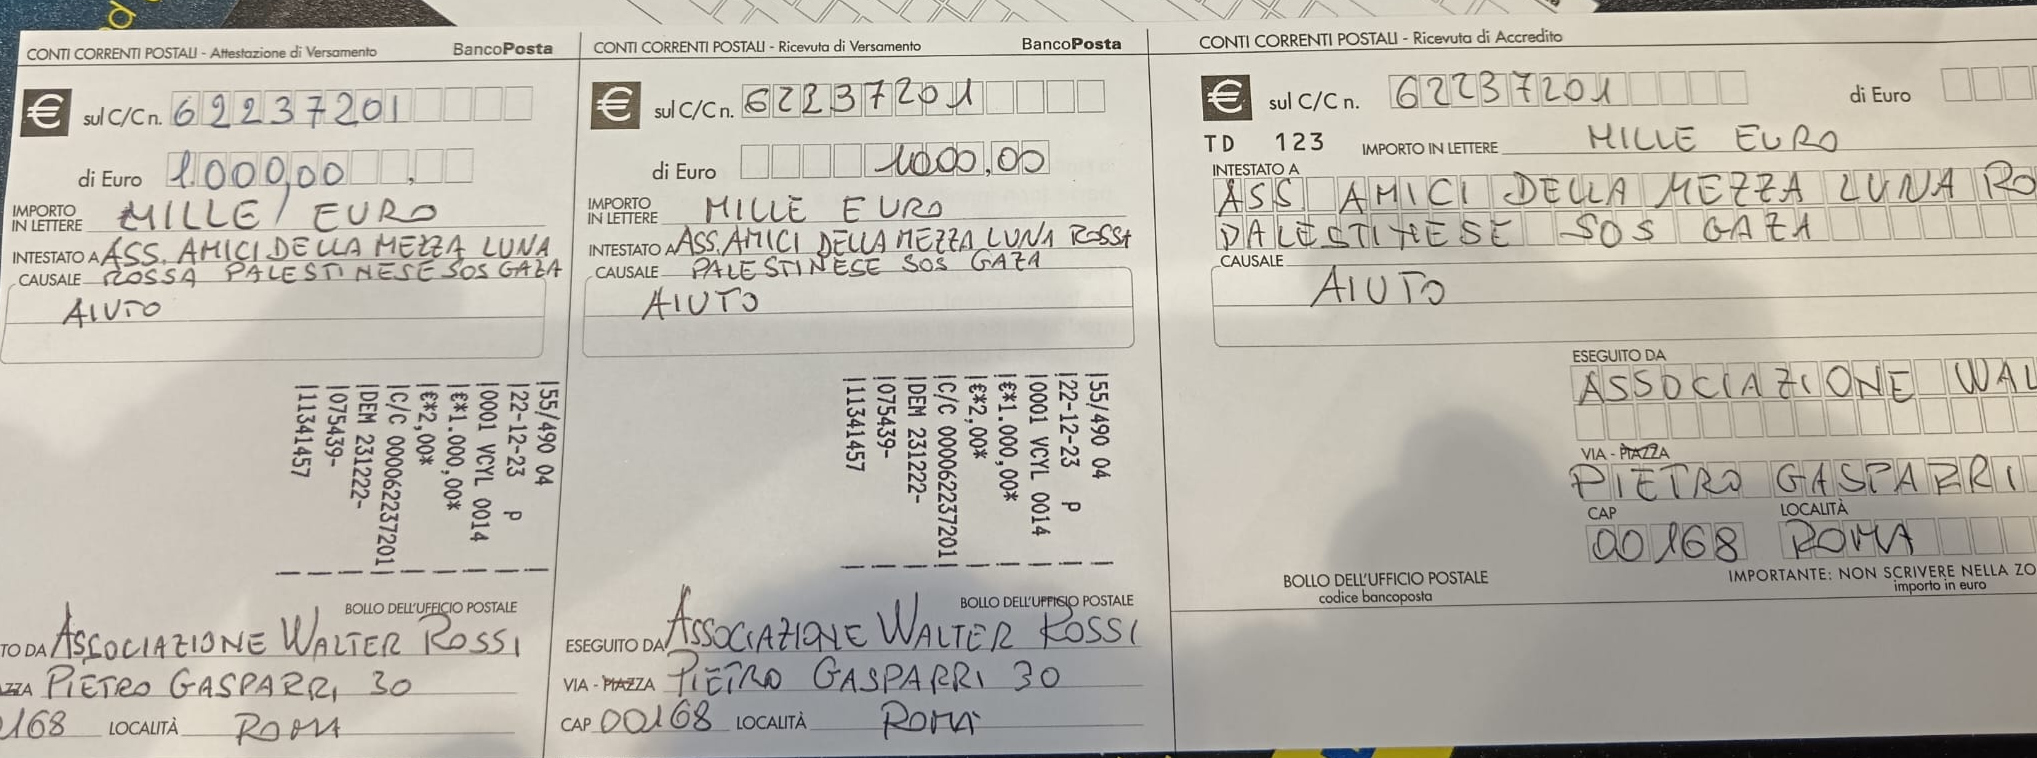 CONTI CORRENTI POSTALI - Attestazione di Versamento BancoPosta
€ sul C/C n. 62237201
di Euro 1.000,00
IMPORTO IN LETTERE MILLE/ EURO
INTESTATO A ASS. AMICI DELLA MEZZA LUNA
ROSSA PALESTINESE SOS GAZA
CAUSALE
AIUTO
|55/490 04
|22-12-23 P
|0001 VCYL 0014
|€*1.000,00*
|€*2,00*
|C/C 000062237201|
|DEM 231222-
|075439-
|11341457
BOLLO DELL'UFFICIO POSTALE
TO DA ASSOCIAZIONE WALTER ROSSI
ZZA PIETRO GASPARRI 30
168 LOCALITÀ ROMA
CONTI CORRENTI POSTALI - Ricevuta di Versamento BancoPosta
€ sul C/C n. 62237201
di Euro 1000,00
IMPORTO IN LETTERE MILLE EURO
INTESTATO A ASS. AMICI DELLA MEZZA LUNA ROSSA
PALESTINESE SOS GAZA
CAUSALE
AIUTO
|55/490 04
|22-12-23 P
|0001 VCYL 0014
|€*1.000,00*
|€*2,00*
|C/C 000062237201|
|DEM 231222-
|075439-
|11341457
BOLLO DELL'UFFICIO POSTALE
ESEGUITO DA ASSOCIAZIONE WALTER ROSSI
VIA - PIAZZA PIETRO GASPARRI 30
CAP 00168 LOCALITÀ ROMA
CONTI CORRENTI POSTALI - Ricevuta di Accredito
€ sul C/C n. 62237201 di Euro
TD 123 IMPORTO IN LETTERE MILLE EURO
INTESTATO A
ASS AMICI DELLA MEZZA LUNA RO
PALESTINESE SOS GAZA
CAUSALE
AIUTO
ESEGUITO DA
ASSOCIAZIONE WAL
VIA - PIAZZA
PIETRO GASPARRI
CAP LOCALITÀ
00168 ROMA
BOLLO DELL'UFFICIO POSTALE
codice bancoposta
IMPORTANTE: NON SCRIVERE NELLA ZO
importo in euro